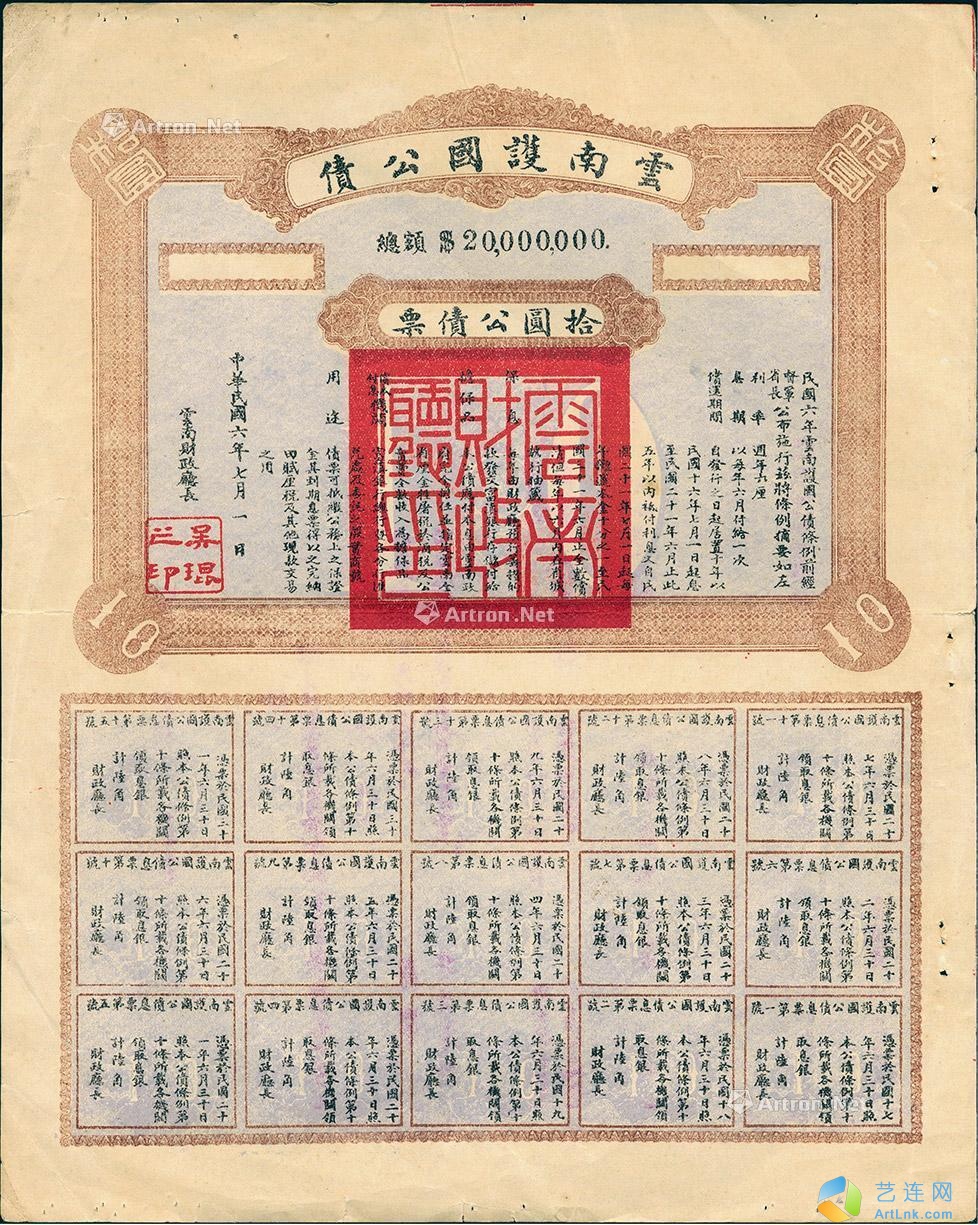 雲南護國公債
拾圓
拾圓
總額 $20,000,000.
拾圓公債票
民國六年雲南護國公債條例前經
督軍
省長
公布施行茲將條例摘要如左
利率 週年六厘
息期 以每年六月付給一次
償還期間 自發行之日起居置十年以
民國十六年七月一日起息
至民國二十一年六月止此
五年以內祗付利息又自民
國二十一年七月一日起每
執行抽籤
用途 債票可抵繳公務上之保證
金其到期息票得以之完納
田賦厘稅及其他現款交易
之用
中華民國六年七月一日
雲南財政廳長
吳琨之印
雲南財政廳印
10
10
雲南護國公債息票第十一號
憑票於民國二十
七年六月三十日
照本公債條例第
十條所載各機關
領取息銀
計陸角
財政廳長
雲南護國公債息票第十二號
憑票於民國二十
八年六月三十日
照本公債條例第
十條所載各機關
領取息銀
計陸角
財政廳長
雲南護國公債息票第十三號
憑票於民國二十
九年六月三十日
照本公債條例第
十條所載各機關
領取息銀
計陸角
財政廳長
雲南護國公債息票第十四號
憑票於民國三十
年六月三十日照
本公債條例第十
條所載各機關領
取息銀
計陸角
財政廳長
雲南護國公債息票第十五號
憑票於民國三十
一年六月三十日
照本公債條例第
十條所載各機關
領取息銀
計陸角
財政廳長
雲南護國公債息票第六號
憑票於民國二十
二年六月三十日
照本公債條例第
十條所載各機關
領取息銀
計陸角
財政廳長
雲南護國公債息票第七號
憑票於民國二十
三年六月三十日
照本公債條例第
十條所載各機關
領取息銀
計陸角
財政廳長
雲南護國公債息票第八號
憑票於民國二十
四年六月三十日
照本公債條例第
十條所載各機關
領取息銀
計陸角
財政廳長
雲南護國公債息票第九號
憑票於民國二十
五年六月三十日
照本公債條例第
十條所載各機關
領取息銀
計陸角
財政廳長
雲南護國公債息票第十號
憑票於民國二十
六年六月三十日
照本公債條例第
十條所載各機關
領取息銀
計陸角
財政廳長
雲南護國公債息票第一號
憑票於民國十七
年六月三十日照
本公債條例第十
條所載各機關領
取息銀
計陸角
財政廳長
雲南護國公債息票第二號
憑票於民國十八
年六月三十日照
本公債條例第十
條所載各機關領
取息銀
計陸角
財政廳長
雲南護國公債息票第三號
憑票於民國十九
年六月三十日照
本公債條例第十
條所載各機關領
取息銀
計陸角
財政廳長
雲南護國公債息票第四號
憑票於民國二十
年六月三十日照
本公債條例第十
條所載各機關領
取息銀
計陸角
財政廳長
雲南護國公債息票第五號
憑票於民國二十
一年六月三十日
照本公債條例第
十條所載各機關
領取息銀
計陸角
財政廳長
Artron.Net
Artron.Net
Artron.Net
艺连网
ArtLnk.com